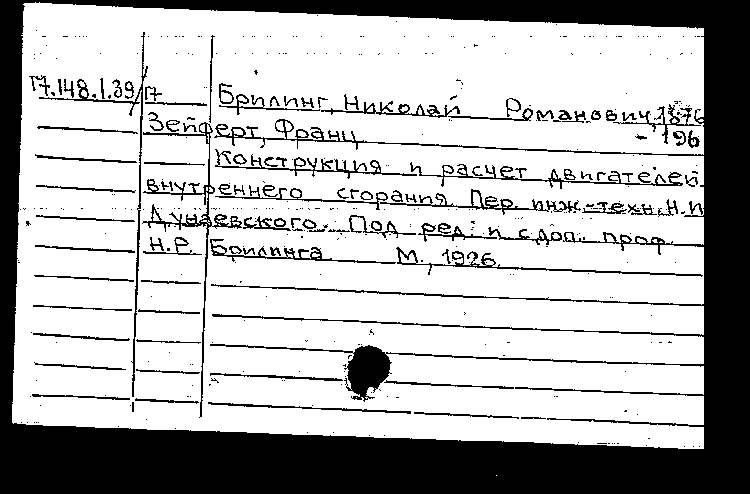 17.148.1.39/17 Брилинг, Николай Романович, 1876
- 196
Зейферт, Франц
Конструкция и расчет двигателей
внутреннего сгорания. Пер. инж.-техн. Н.И
Дунаевского. Под ред. и с доп. проф.
Н.Р. Брилинга М., 1926.